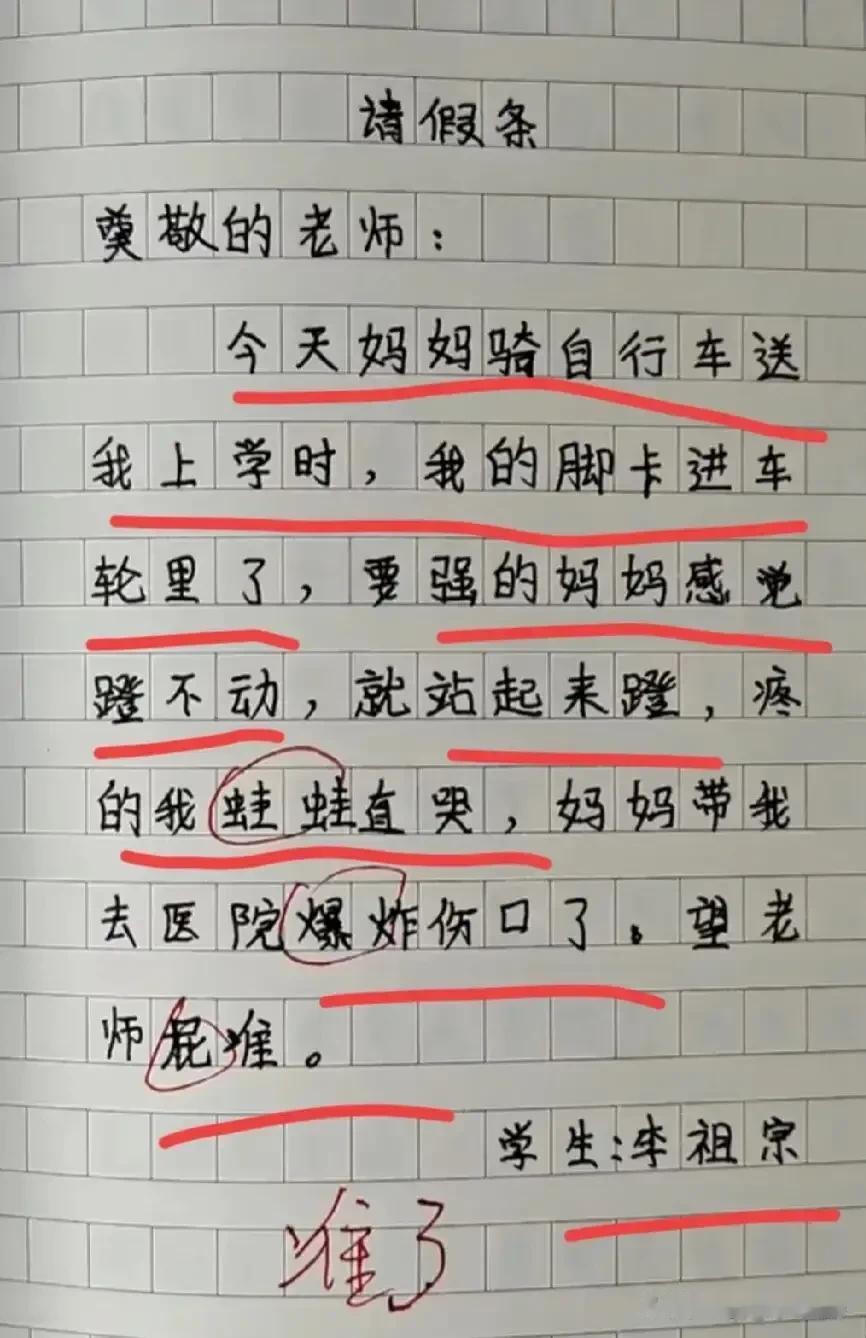 请假条
尊敬的老师：
今天妈妈骑自行车送
我上学时，我的脚卡进车
轮里了，要强的妈妈感觉
蹬不动，就站起来蹬，疼
的我蛙蛙直哭，妈妈带我
去医院爆炸伤口了。望老
师屁准。
学生：李祖宗
准了